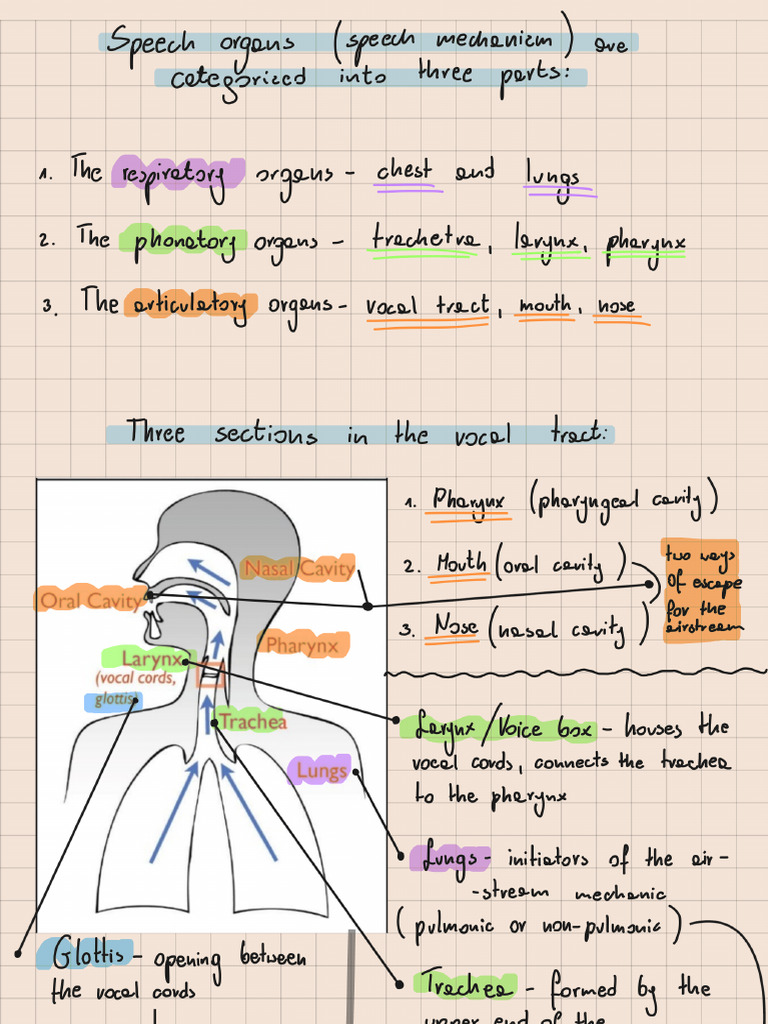 Speech organs (speech mechanizm) are
categorized into three parts:
1. The respiratory organs - chest and lungs
2. The phonatory organs - trachetra, larynx, pharynx
3. The articulatory organs - vocal tract, mouth, nose
Three sections in the vocal tract:
1. Pharynx (pharyngeal cavity)
2. Mouth (oral cavity)
3. Nose (nasal cavity)
two ways
of escape
for the
airstream
Nasal Cavity
Oral Cavity
Pharynx
Larynx
(vocal cords,
glottis)
Trachea
Lungs
Larynx/Voice box - houses the
vocal cords, connects the trachea
to the pharynx
Lungs - initiators of the air-
-stream mechanic
(pulmonic or non-pulmonic)
Glottis - opening between
the vocal cords
Trachea - formed by the
upper end of the